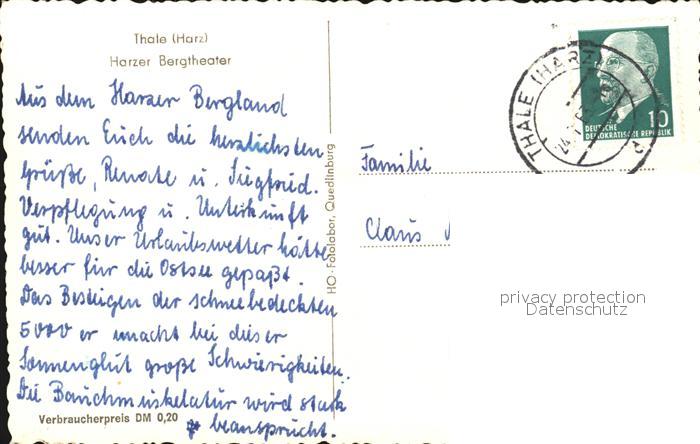 Thale (Harz)
Harzer Bergtheater
Aus dem Harzer Bergland
senden Euch die herzlichsten
Grüße, Renate u. Siegfried.
Verpflegung u. Unterkunft
gut. Unser Urlaubswetter hätte
besser für die Ostsee gepaßt.
Das Besteigen der schneebedeckten
5000er macht bei dieser
Sonnenglut große Schwierigkeiten.
Die Bauchmuskelatur wird stark
beansprucht.
Verbraucherpreis DM 0,20
HO-Fotolabor, Quedlinburg
THALE (HARZ)
DEUTSCHE
DEMOKRATISCHE REPUBLIK
10
Familie
Claus
privacy protection
Datenschutz